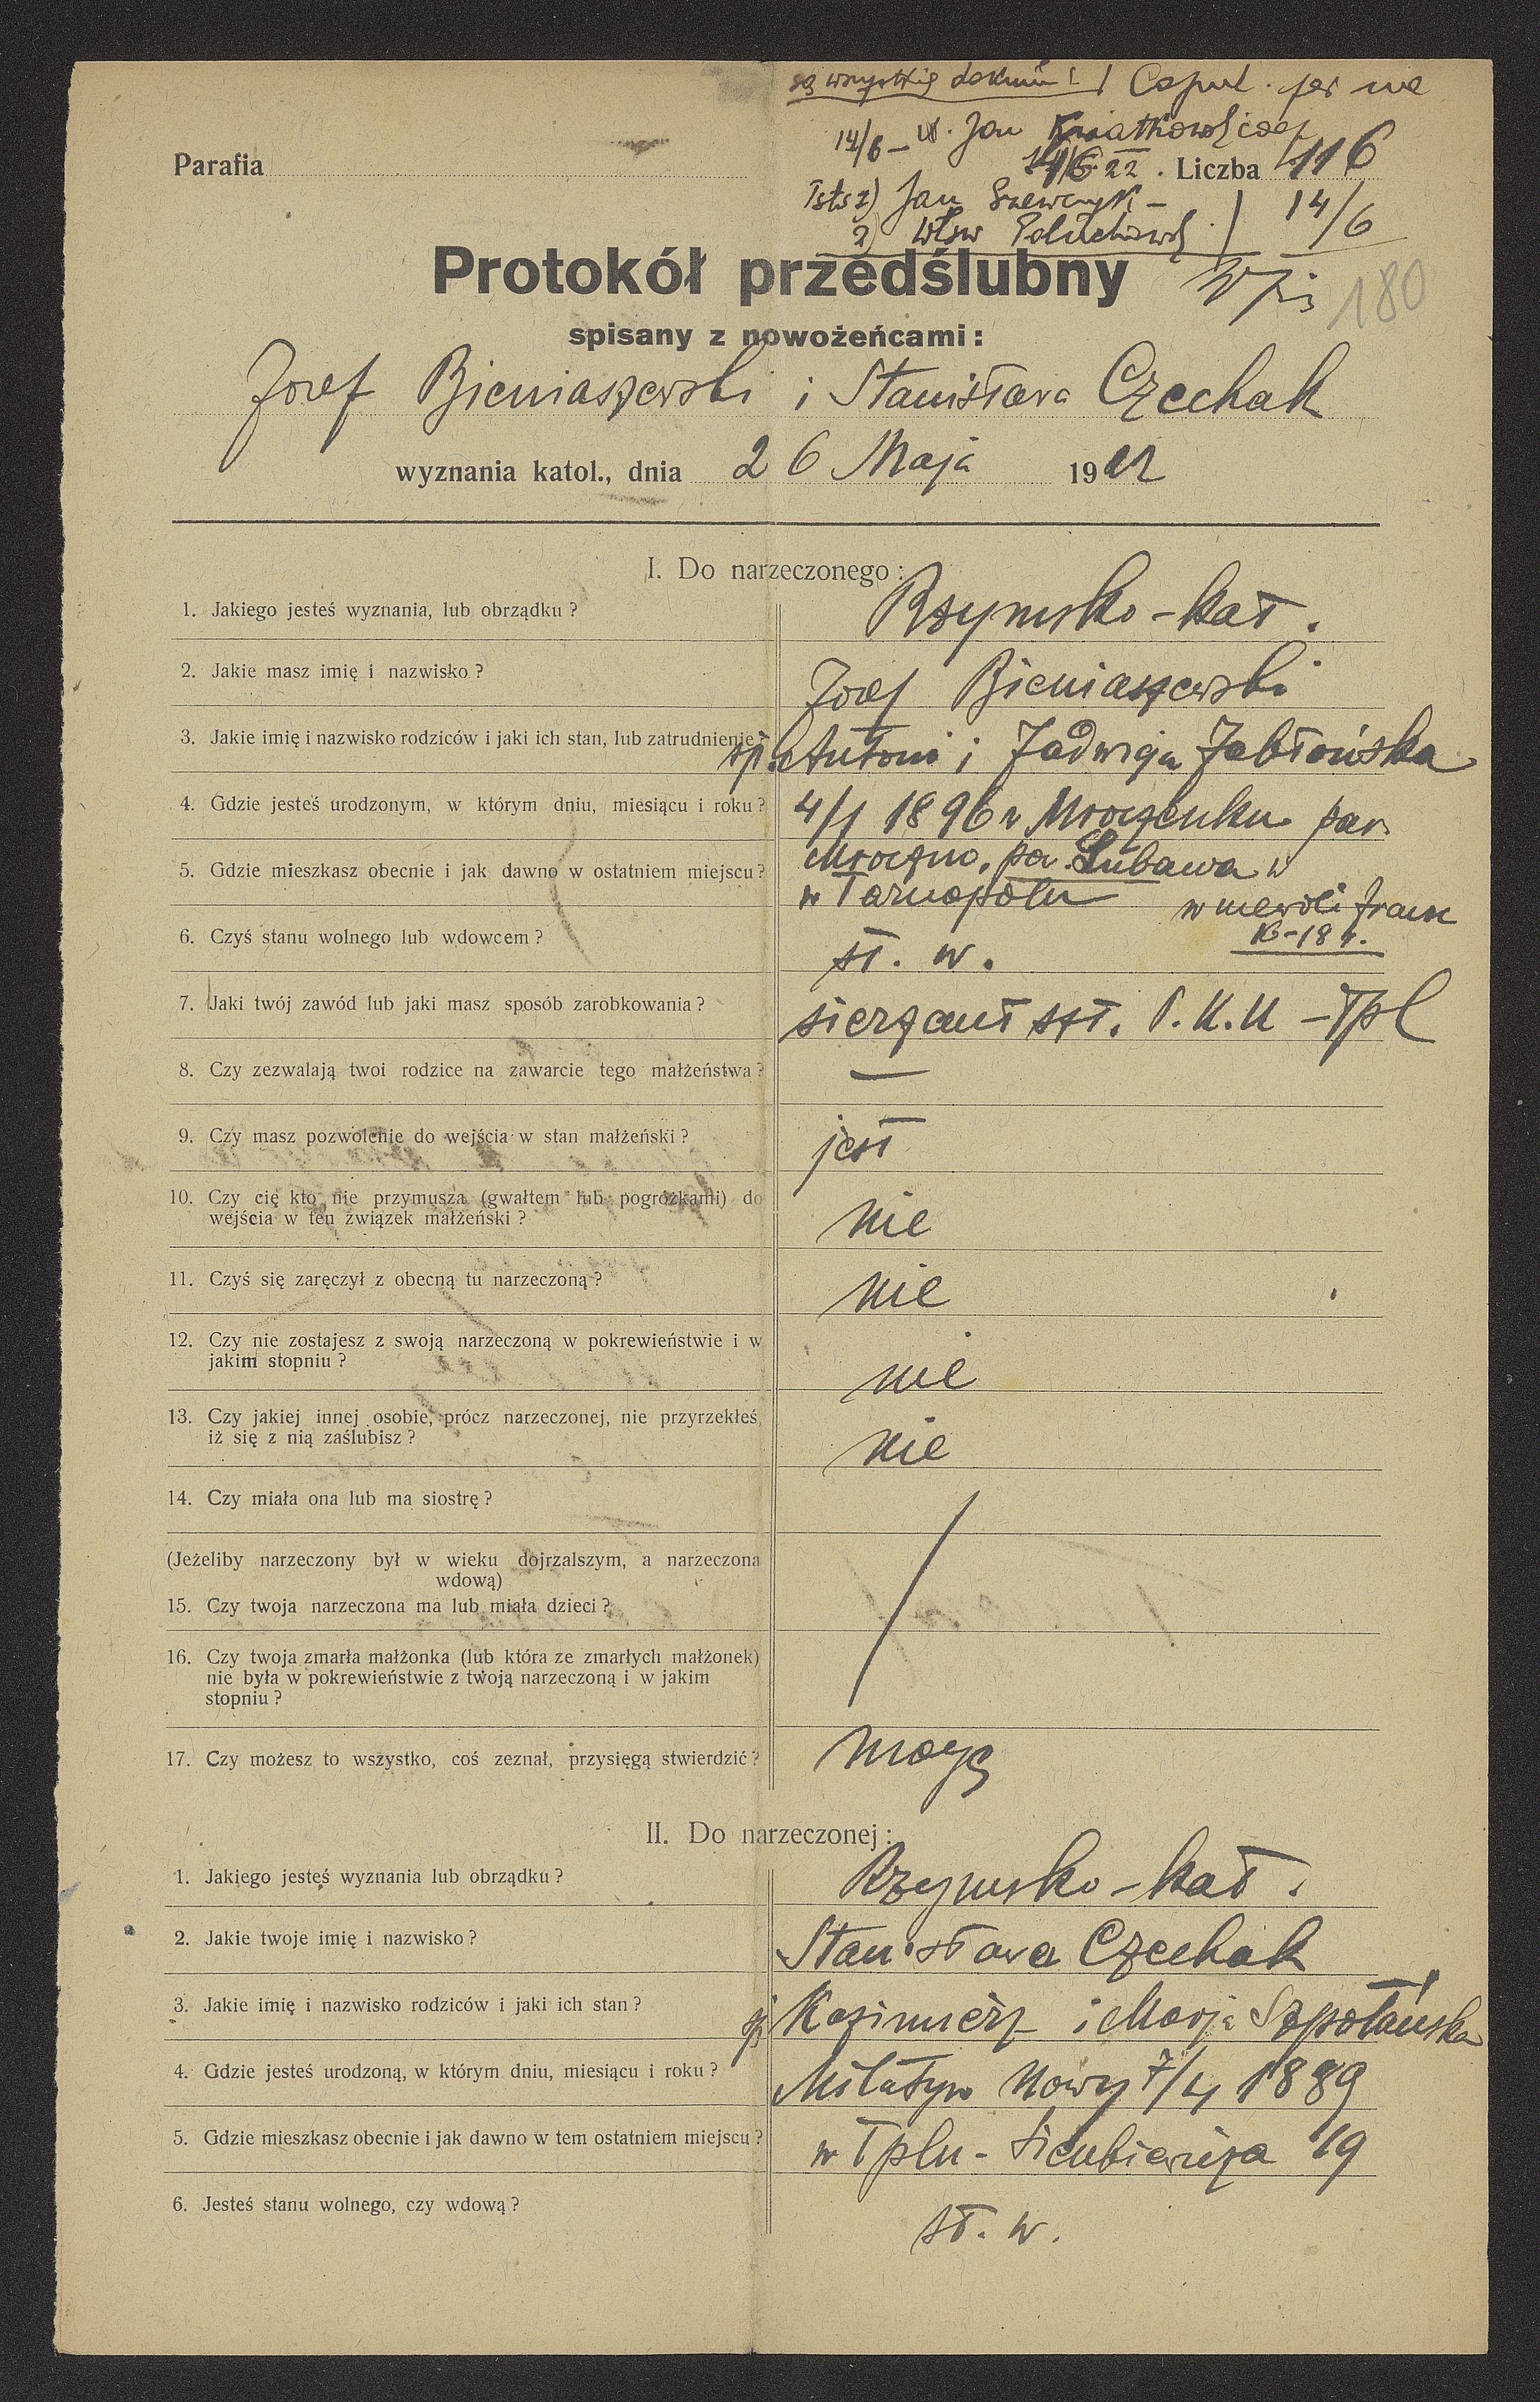 są wszystkie dokum. ! Copul. per me
14/6 – X. Jan Kwiatkowski
Parafia
14/6 22. Liczba 116
Tsts 1) Jan Szewczyk – 14/6
2) Wł
Protokół przedślubny
180
spisany z nowożeńcami:
Józef Bieniaszewski i Stanisława Czechak
wyznania katol., dnia 26 Maja 1922
I. Do narzeczonego:
1. Jakiego jesteś wyznania, lub obrządku? Rzymsko-kat.
2. Jakie masz imię i nazwisko? Józef Bieniaszewski
3. Jakie imię i nazwisko rodziców i jaki ich stan, lub zatrudnienie? śp. Antoni i Jadwiga Jabłońska
4. Gdzie jesteś urodzonym, w którym dniu, miesiącu i roku? 4/1 1896 w Mroczenku par.
Mroczno, po. Lubawa
5. Gdzie mieszkasz obecnie i jak dawno w ostatniem miejscu? w Tarnopolu w niewoli franc
16-18 r.
6. Czyś stanu wolnego lub wdowcem? st. w.
7. Jaki twój zawód lub jaki masz sposób zarobkowania? sierżant szt. P.K.U – Tpl
8. Czy zezwalają twoi rodzice na zawarcie tego małżeństwa? —
9. Czy masz pozwolenie do wejścia w stan małżeński? jest
10. Czy cię kto nie przymusza (gwałtem lub pogróżkami) do
wejścia w ten związek małżeński? nie
11. Czyś się zaręczył z obecną tu narzeczoną? nie
12. Czy nie zostajesz z swoją narzeczoną w pokrewieństwie i w
jakim stopniu? nie
13. Czy jakiej innej osobie, prócz narzeczonej, nie przyrzekłeś,
iż się z nią zaślubisz? nie
14. Czy miała ona lub ma siostrę?
(Jeżeliby narzeczony był w wieku dojrzalszym, a narzeczona
wdową)
15. Czy twoja narzeczona ma lub miała dzieci?
16. Czy twoja zmarła małżonka (lub która ze zmarłych małżonek)
nie była w pokrewieństwie z twoją narzeczoną i w jakim
stopniu?
17. Czy możesz to wszystko, coś zeznał, przysięgą stwierdzić? mogę
II. Do narzeczonej:
1. Jakiego jesteś wyznania lub obrządku? Rzymsko-kat.
2. Jakie twoje imię i nazwisko? Stanisława Czechak
3. Jakie imię i nazwisko rodziców i jaki ich stan? śp Kazimierz i Marja Szpotańska
4. Gdzie jesteś urodzoną, w którym dniu, miesiącu i roku? Milatyn Nowy 7/4 1889
5. Gdzie mieszkasz obecnie i jak dawno w tem ostatniem miejscu? w Tplu – 19
6. Jesteś stanu wolnego, czy wdową? st. w.